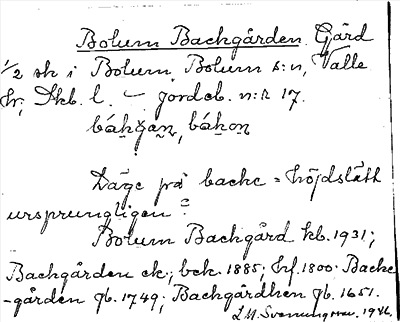 Bolum Backgården Gård
1/2 sk i Bolum, Bolum s:n, Valle
hr; Skb. l. – jordeb. n:r 17.
Läge på backe = höjdslätt
ursprungligen?
Bolum Backgård kb. 1931;
Backgården ek., bek. 1885; hf. 1800. Backe
-gården gb. 1749; Backgårdhen gb. 1651.
1946.